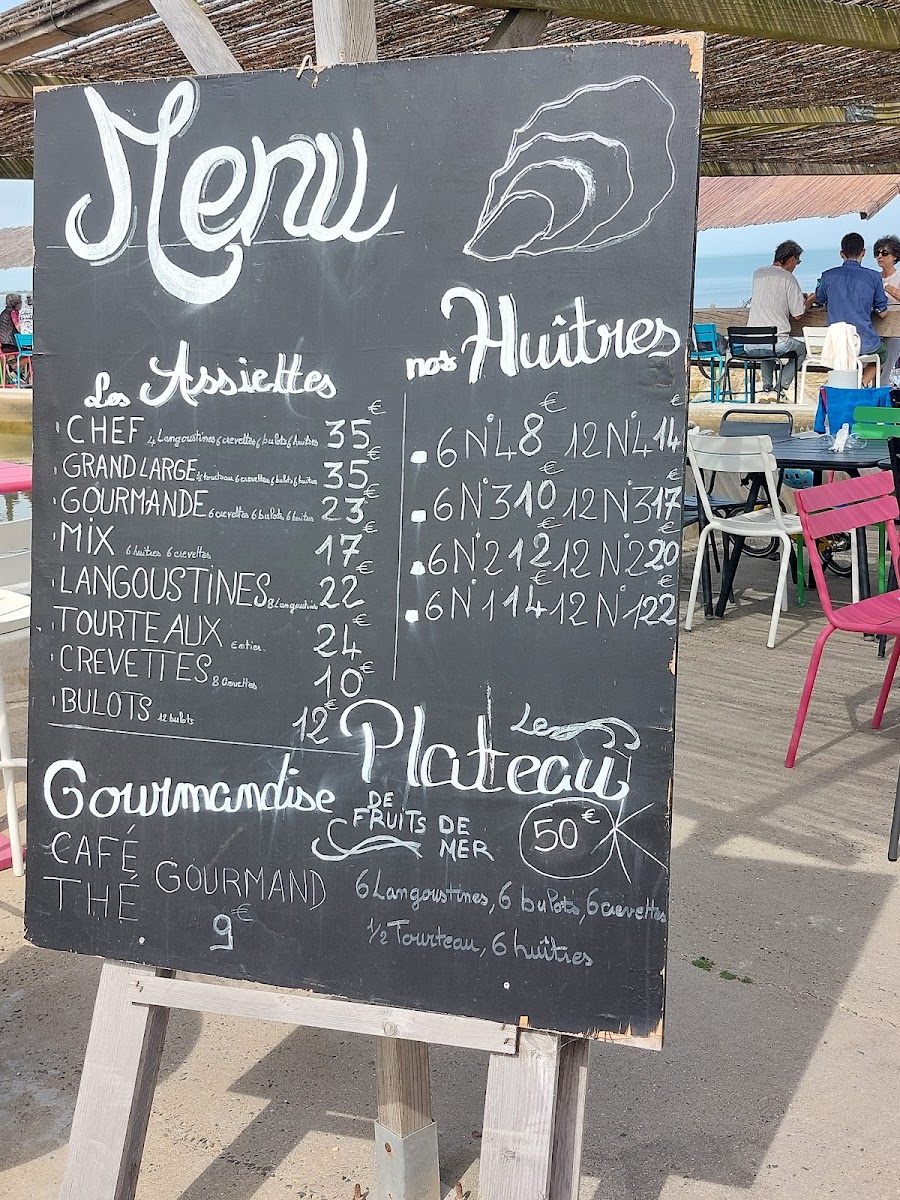 Menu
Les Assiettes
CHEF 4 Langoustines 6 crevettes 6 bulots 6 huitres 35€
GRAND LARGE 1/2 tourteau 6 crevettes 6 bulots 6 huitres 35€
GOURMANDE 6 crevettes 6 bulots 6 huitres 23€
MIX 6 huitres 6 crevettes 17€
LANGOUSTINES 8 Langoustines 22€
TOURTEAUX Entier 24€
CREVETTES 8 crevettes 10€
BULOTS 12 bulots 12€
nos Huîtres
6 N°4 8€ 12 N°4 14€
6 N°3 10€ 12 N°3 17€
6 N°2 12€ 12 N°2 20€
6 N°1 14€ 12 N°1 22€
Gourmandise
CAFÉ
THÉ
GOURMAND
9€
Le Plateau
DE
FRUITS DE
MER
50€
6 Langoustines, 6 bulots, 6 crevettes
1/2 Tourteau, 6 huîtres